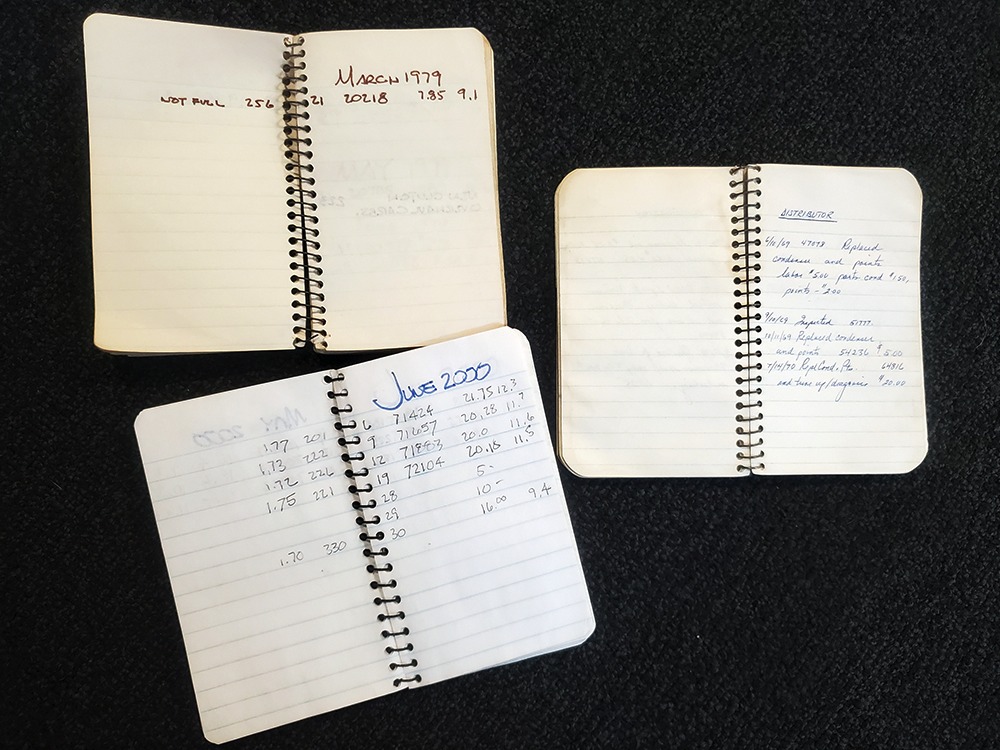 MARCH 1979
NOT FULL 256 21 20218 7.85 9.1
DISTRIBUTOR
6/10/69 47078 Replaced
condenser and points
labor $5.00 parts cond $1.50,
points - $2.00
9/10/69 Inspected 51777
10/11/69 Replaced condenser
and points 54236 $5.00
7/14/70 Repl Cond, Pts. 64816
and tune up/diagnosis $20.00
JUNE 2000
1.77 201 6 71424 21.75 12.3
1.73 222 9 71657 20.28 11.7
1.72 226 12 71883 20.0 11.6
1.75 221 19 72104 20.18 11.5
28 5-
29 10-
1.70 330 30 16.00 9.4
MAY 2000